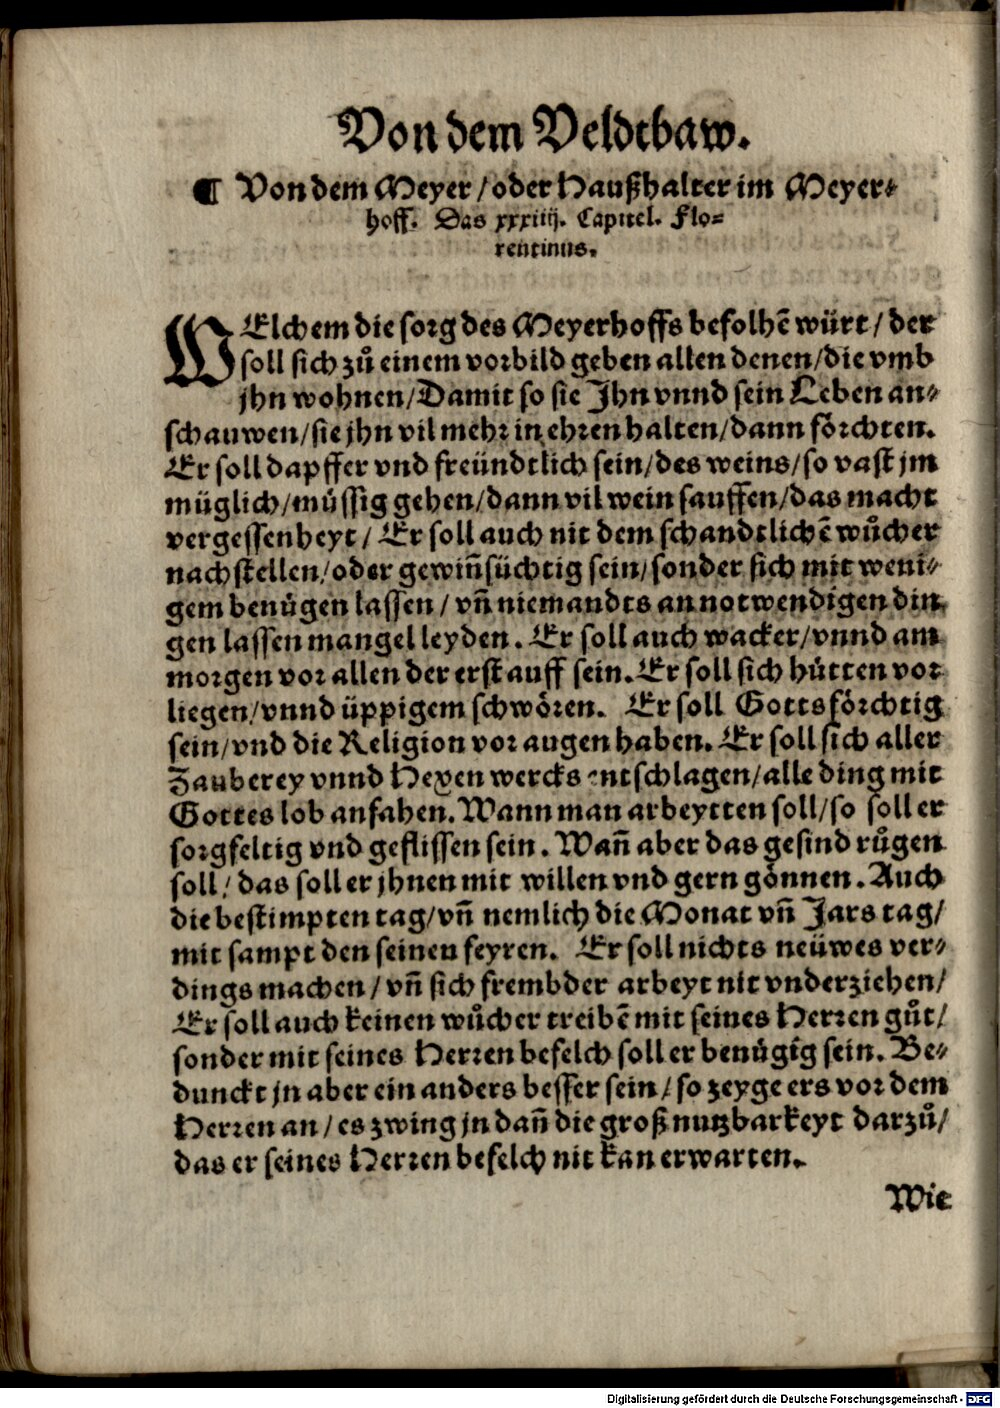 Von dem Veldtbaw.
¶ Von dem Meyer/oder Haußhalter im Meyer⸗
hoff. Das xxxiiij. Capitel. Flo⸗
rentinus.
WElchem die sorg des Meyerhoffs befolhē würt/der
soll sich zů einem vorbild geben allen denen/die vmb
jhn wohnen/Damit so sie Jhn vnnd sein Leben an⸗
schauwen/sie jhn vil mehr in ehren halten/dann förchten.
Er soll dapffer vnd freündtlich sein/des weins/so vast jm
müglich/müssig gehen/dann vil wein sauffen/das macht
vergessenheyt/ Er soll auch nit dem schandtlichē wůcher
nachstellen/oder gewiñsüchtig sein/sonder sich mit weni⸗
gem benügen lassen/ vñ niemandts an notwendigen din
gen lassen mangel leyden. Er soll auch wacker/vnnd am
morgen vor allen der erst auff sein. Er soll sich hütten vor
liegen/vnnd üppigem schwören. Er soll Gottsförchtig
sein/vnd die Religion vor augen haben. Er soll sich aller
Zauberey vnnd Hexen wercks entschlagen/alle ding mit
Gottes lob anfahen. Wann man arbeytten soll/so soll er
sorgfeltig vnd geflissen sein. Wañ aber das gesind růgen
soll/ das soll er jhnen mit willen vnd gern gönnen. Auch
die bestimpten tag/vñ nemlich die Monat vñ Jars tag/
mit sampt den seinen feyren. Er soll nichts neüwes ver⸗
dings machen/ vñ sich frembder arbeyt nit vnderziehen/
Er soll auch keinen wůcher treibē mit seines Herren gůt/
sonder mit seines Herren befelch soll er benügig sein. Be⸗
dunckt jn aber ein anders besser sein/so zeyge ers vor dem
Herren an/ es zwing jn dañ die groß nutzbarkeyt darzů/
das er seines Herren befelch nit kan erwarten.
Wie
Digitalisierung gefördert durch die Deutsche Forschungsgemeinschaft - DFG